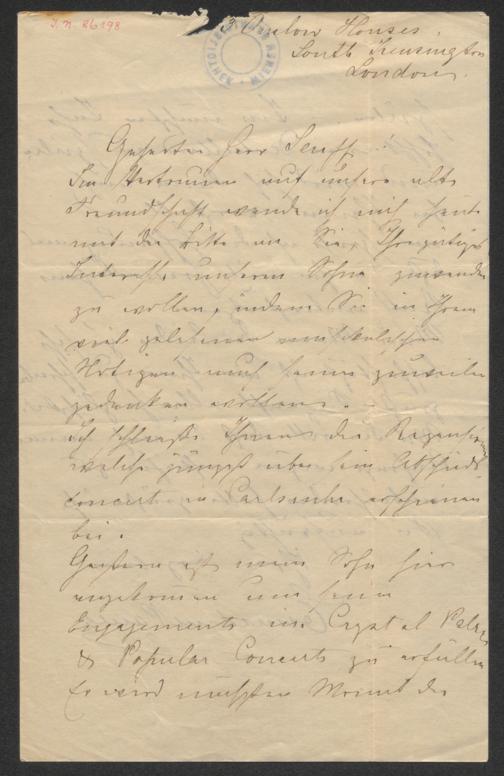 I.N. 86198
Onslow Houses.
South Kensington
London.
Geehrter Herr Senff!
Im Vertrauen auf unsere alte
Freundschaft wende ich mich heute
mit der Bitte an Sie, Ihr gütiges
Interesse unserem Sohne zuwenden
zu wollen, indem Sie in Ihren
viel gelesenen musikalischen
Notizen auch seiner zuweilen
gedenken wollen.
Ich schließe Ihnen die Rezensionen
welche jüngst über sein Abschieds
concert in Carlsruhe erschienen
bei.
Gestern ist mein Sohn hier
angekommen um seine
Engagements im Crystal Palace
& Popular Concerts zu erfüllen
Er wird nächsten Monat der